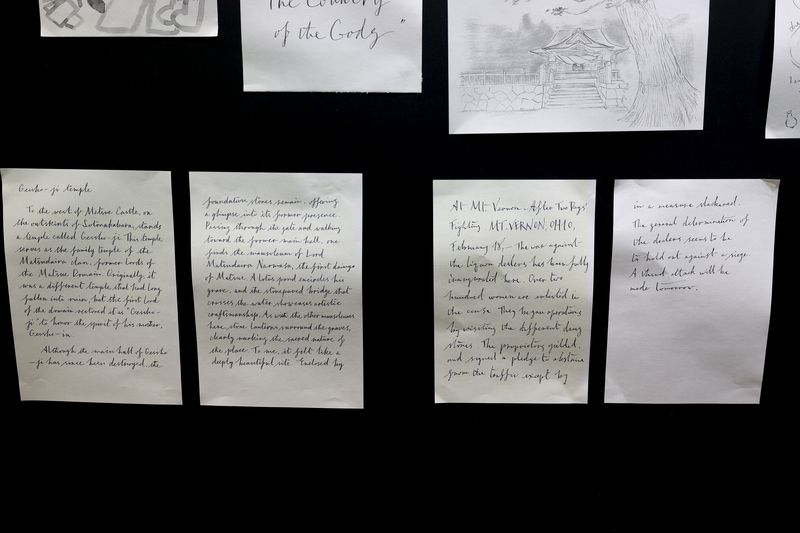 The Country
of the Gods"
Gessho-ji temple
To the west of Matsue Castle, on
the outskirts of Sotonakabara, stands
a temple called Gessho-ji. This temple
serves as the family temple of the
Matsudaira clan, former lords of
the Matsue Domain. Originally, it
was a different temple that had long
fallen into ruin, but the first lord
of the domain restored it as "Gessho-
ji" to honor the spirit of his mother,
Gessho-in.
Although the main hall of Gessho
-ji has since been destroyed, its
foundation stones remain, offering
a glimpse into its former presence.
Passing through the gate and walking
toward the former main hall, one
finds the mausoleum of Lord
Matsudaira Naomasa, the first daimyo
of Matsue. A lotus pond encircles his
grave, and the stonepaved bridge that
crosses the water showcases artistic
craftsmanship. As with the other mausoleums
here, stone lanterns surround the graves,
clearly marking the sacred nature of
the place. To me, it felt like a
deeply beautiful site. Enclosed by
At Mt Vernon - After Two Days'
Fighting. MT. VERNON, OHIO,
February 18, - The war against
the liquor dealers has been fully
inaugurated here. Over two
hundred women are enlisted in
the cause. They began operations
by visiting the different drug
stores. The proprietors yielded,
and signed a pledge to abstain
from the traffic except by
in a measure slackened.
The general determination of
the dealers seems to be
to hold out against a siege.
A third attack will be
made tomorrow.